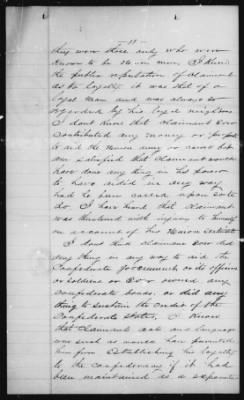 - 11 -
they were those only who were
known to be Union men, I knew
the public reputation of claimant
as to loyalty. it was that of a
loyal man and was always so
regarded by his loyal neighbors
I dont know that claimant ever
contributed any money or property
to aid the Union army or cause but
am satisfied that claimant would
have done any thing in his power
to have aided in any way
had he been called upon so to
do. I have heard that claimant
was threatened with injury to himself
on account of his Union sentiments
I dont know claimant ever did
any thing in any way to aid the
Confederate Government or its officers
or soldiers or ever owned any
confederate bonds. or did any
thing to sustain the credit of the
Confederate States, I know
that claimants acts and language
was such as would have prevented
him from establishing his loyalty
to the confederacy if it had
been maintained as a separate